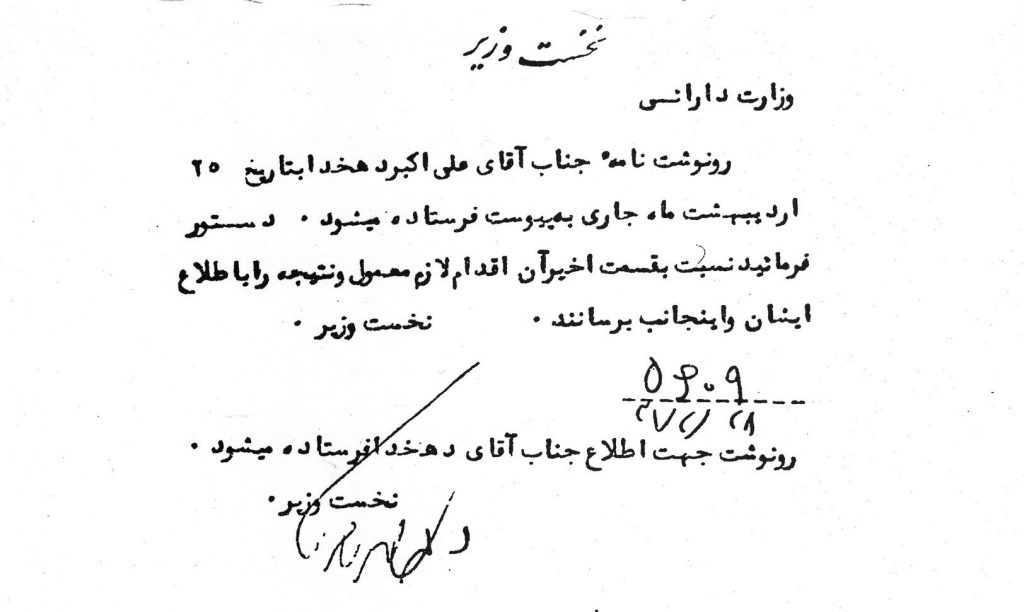 نخست وزیر
وزارت دارائی
رونوشت نامه جناب آقای علی اکبر دهخدا بتاریخ ۲۵
اردیبهشت ماه جاری به پیوست فرستاده میشود . دستور
فرمائید نسبت بقسمت اخیر آن اقدام لازم معمول و نتیجه را باطلاع
ایشان و اینجانب برسانند .
نخست وزیر .
۵۴۰۹
رونوشت جهت اطلاع جناب آقای دهخدا فرستاده میشود .
نخست وزیر .